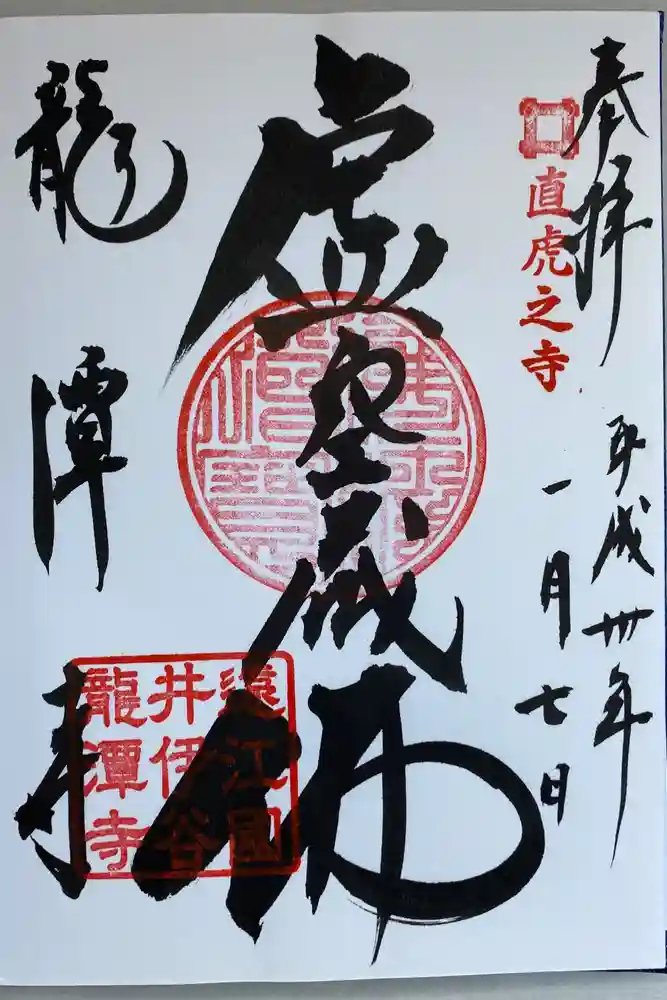 奉拝
直虎之寺
平成卅年
一月七日
虚空蔵佛
龍潭寺
遠江國
井伊谷
龍潭寺